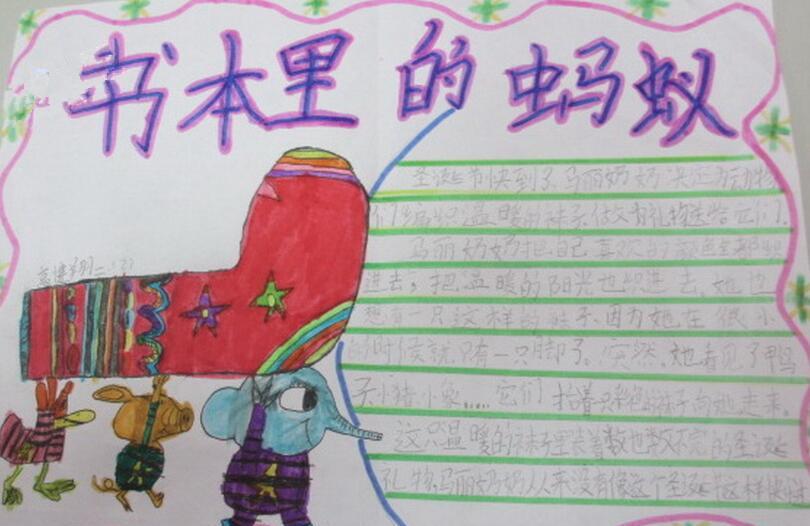 书本里的蚂蚁
圣诞节快到了,马丽奶奶决定为动物
们编织温暖的袜子,做为礼物送给它们.
马丽奶奶把自己喜欢的颜色都织
进去,把温暖的阳光也织进去.她也
想有一只这样的袜子.因为她在很小
的时候就只有一只脚了。突然,她看见了鸭
子小猪小象……它们抬着只彩色袜子向她走来.
这只温暖的袜子里装着数也数不完的圣诞
礼物.马丽奶奶从来没有像这个圣诞这样快